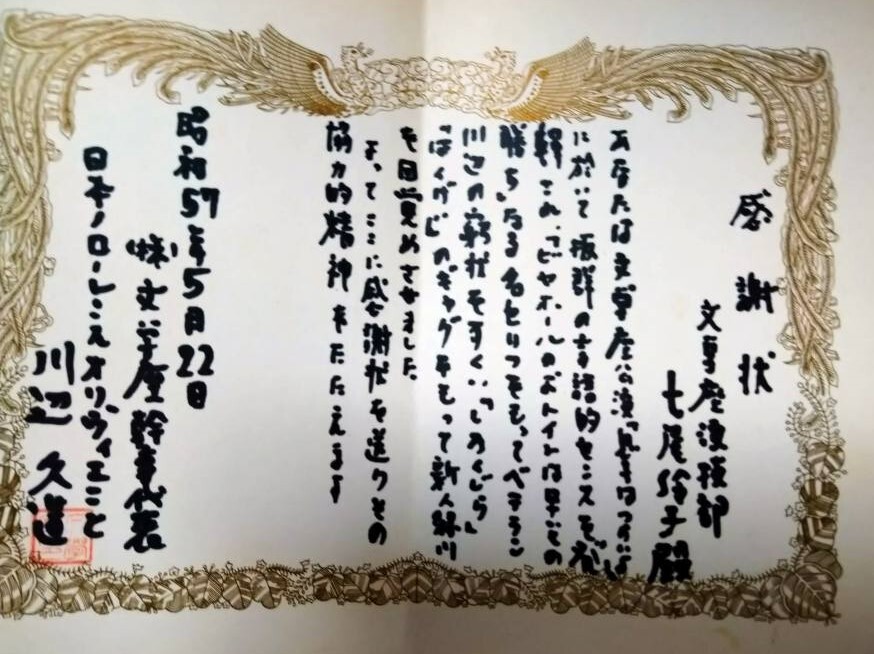 感謝状
文学座演技部
七尾伶子殿
あなたは文学座公演「息子はつらいよ」
に於いて抜群の言語的センスを発
揮され、「ビヤホールのおトイレは早いもの
勝ち」なる名セリフをもってベテラン
川辺の窮状をすくい、「しのくじら」
「はんぐじ」のギャグをもって新人
を目覚めさせました
よってここに感謝状を送りその
協力的精神をたたえます
昭和57年5月22日
(株)文学座幹事代表
日本ノローレンスオリヴィエこと
川辺久造